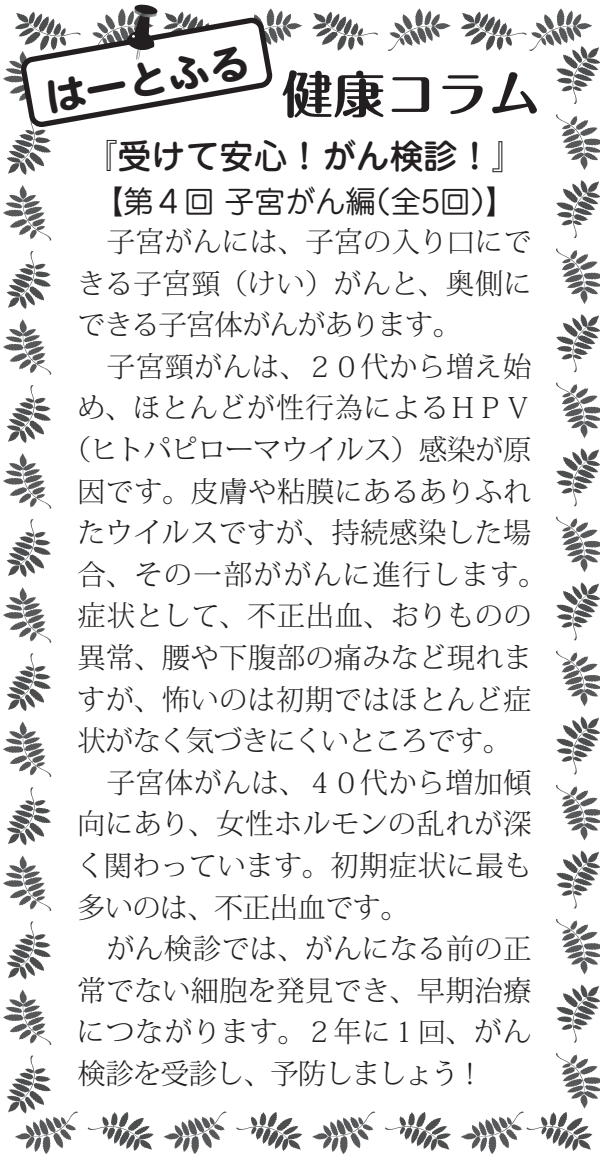 はーとふる
健康コラム
『受けて安心！がん検診！』
【第４回 子宮がん編(全5回)】
　子宮がんには、子宮の入り口にで
きる子宮頸（けい）がんと、奥側に
できる子宮体がんがあります。
　子宮頸がんは、２０代から増え始
め、ほとんどが性行為によるＨＰＶ
（ヒトパピローマウイルス）感染が原
因です。皮膚や粘膜にあるありふれ
たウイルスですが、持続感染した場
合、その一部ががんに進行します。
症状として、不正出血、おりものの
異常、腰や下腹部の痛みなど現れま
すが、怖いのは初期ではほとんど症
状がなく気づきにくいところです。
　子宮体がんは、４０代から増加傾
向にあり、女性ホルモンの乱れが深
く関わっています。初期症状に最も
多いのは、不正出血です。
　がん検診では、がんになる前の正
常でない細胞を発見でき、早期治療
につながります。２年に１回、がん
検診を受診し、予防しましょう！